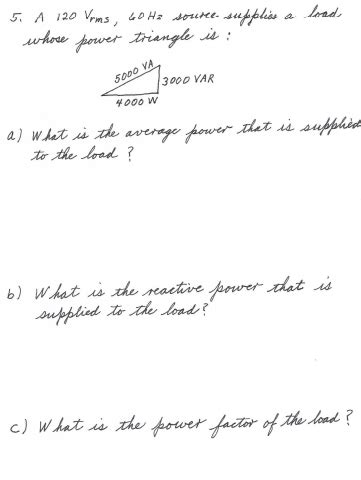 5. A 120 Vrms, 60 Hz source supplies a load
whose power triangle is :
5000 VA
3000 VAR
4000 W
a) What is the average power that is supplied
to the load ?
b) What is the reactive power that is
supplied to the load?
c) What is the power factor of the load ?